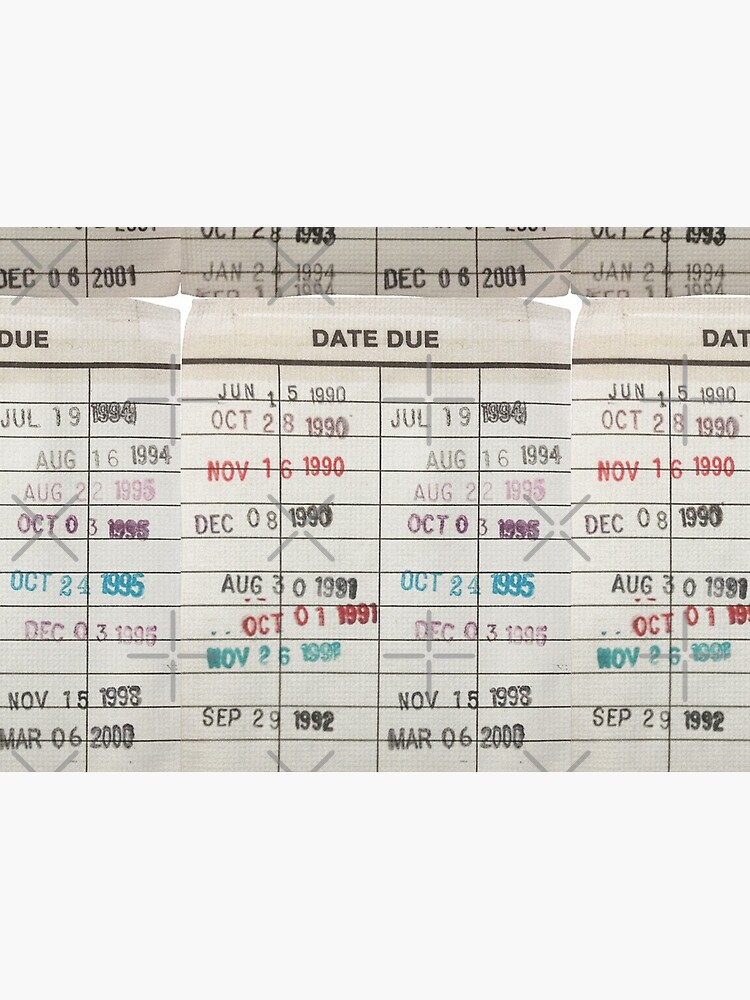 OCT 28 1993 OCT 28 1993
DEC 06 2001 JAN 24 1994 DEC 06 2001 JAN 24 1994
DUE DATE DUE DAT
JUN 15 1990 JUN 15 1990
JUL 19 1994 OCT 28 1990 JUL 19 1994 OCT 28 1990
AUG 16 1994 NOV 16 1990 AUG 16 1994 NOV 16 1990
AUG 22 1995 AUG 22 1995
OCT 03 1995 DEC 08 1990 OCT 03 1995 DEC 08 1990
OCT 24 1995 AUG 30 1991 OCT 24 1995 AUG 30 1991
DEC 03 1995 OCT 01 1991 DEC 03 1995 OCT 01 19
NOV 26 NOV 26
NOV 15 1998 SEP 29 1992 NOV 15 1998 SEP 29 1992
MAR 06 2000 MAR 06 2000